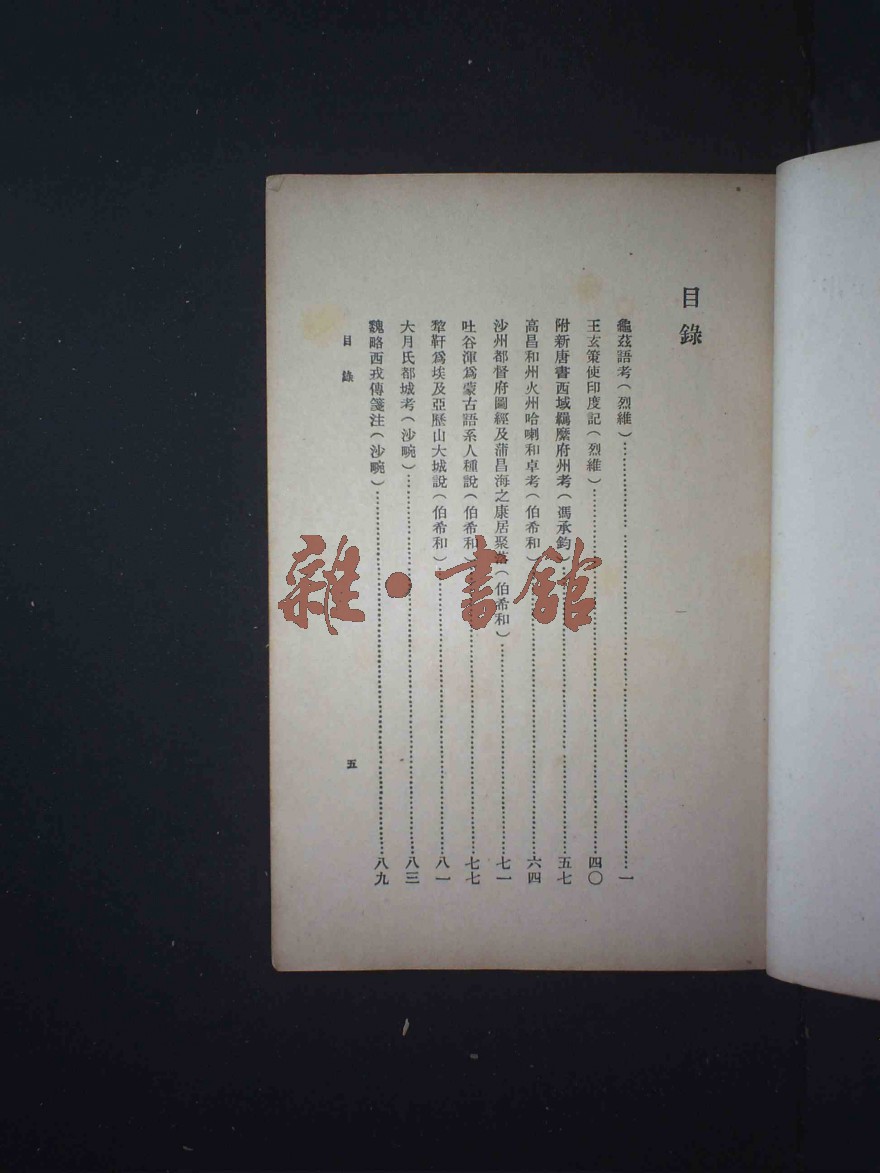 目錄
龜茲語考（烈維）……一
王玄策使印度記（烈維）……四〇
附新唐書西域羈縻府州考（馮承鈞）……五七
高昌和州火州哈喇和卓考（伯希和）……六四
沙州都督府圖經及蒲昌海之康居聚落（伯希和）……七一
吐谷渾爲蒙古語系人種說（伯希和）……七七
犂靬爲埃及亞歷山大城說（伯希和）……八一
大月氏都城考（沙畹）……八三
魏略西戎傳箋注（沙畹）……八九
目錄
五
雜·書館